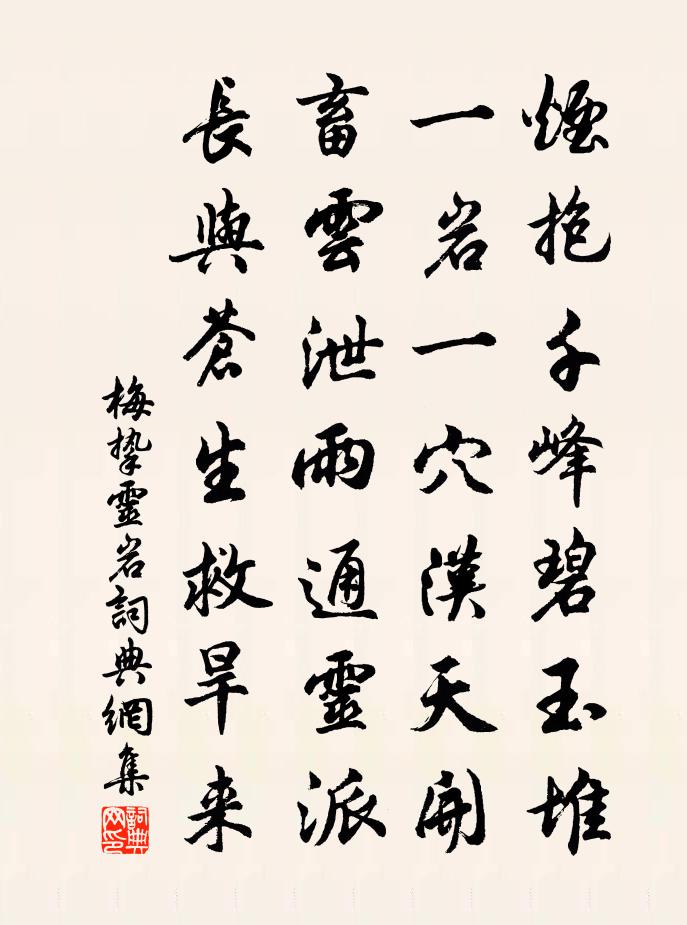 煙抱千峰碧玉堆
一岩一穴漢天開
畜雲泄雨通靈派
長與蒼生救旱来
梅摯靈岩詞典網集
詞典网印